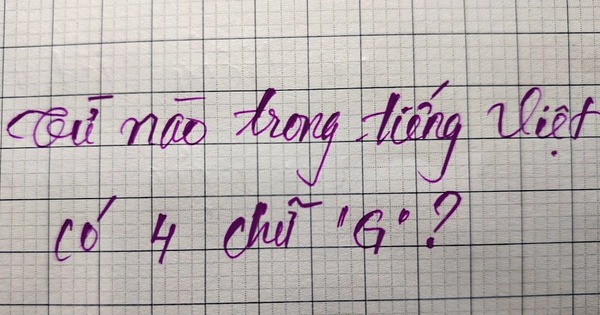 Từ nào trong tiếng Việt
có 4 chữ "G"?